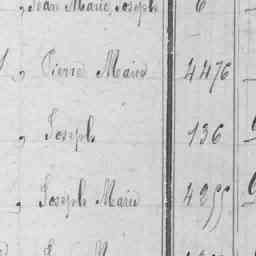 , Jean Marie, Joseph 6
, Pierre Marie 4476
, Joseph 136
, Joseph Marie 4255